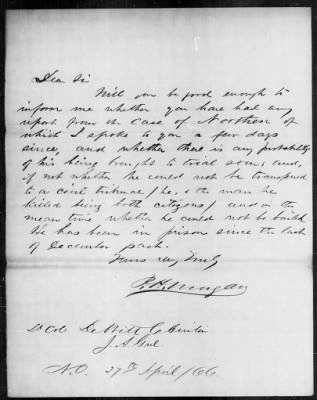 Dear Sir
Will you be good enough to
inform me whether you have had any
report from the case of Northern of
which I spoke to you a few days
since, and whether there is any probability
of his being brought to trial soon; and,
if not whether he could not be transferred
to a civil tribunal / he, & the man he
killed being both citizens / and in the
mean time whether he could not be bailed
He has been in prison since the last
of December past.
Yours very truly
P. H. Morgan
Lt Col De Witt Clinton
J. A. Genl
N.O. 27th April / 66